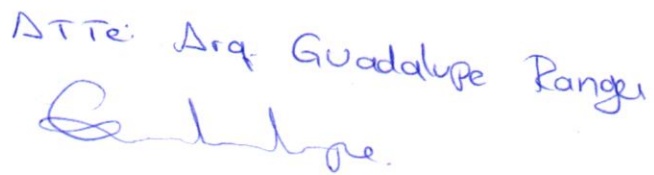 ATTe: Arq. Guadalupe Rangel
Guadalupe.